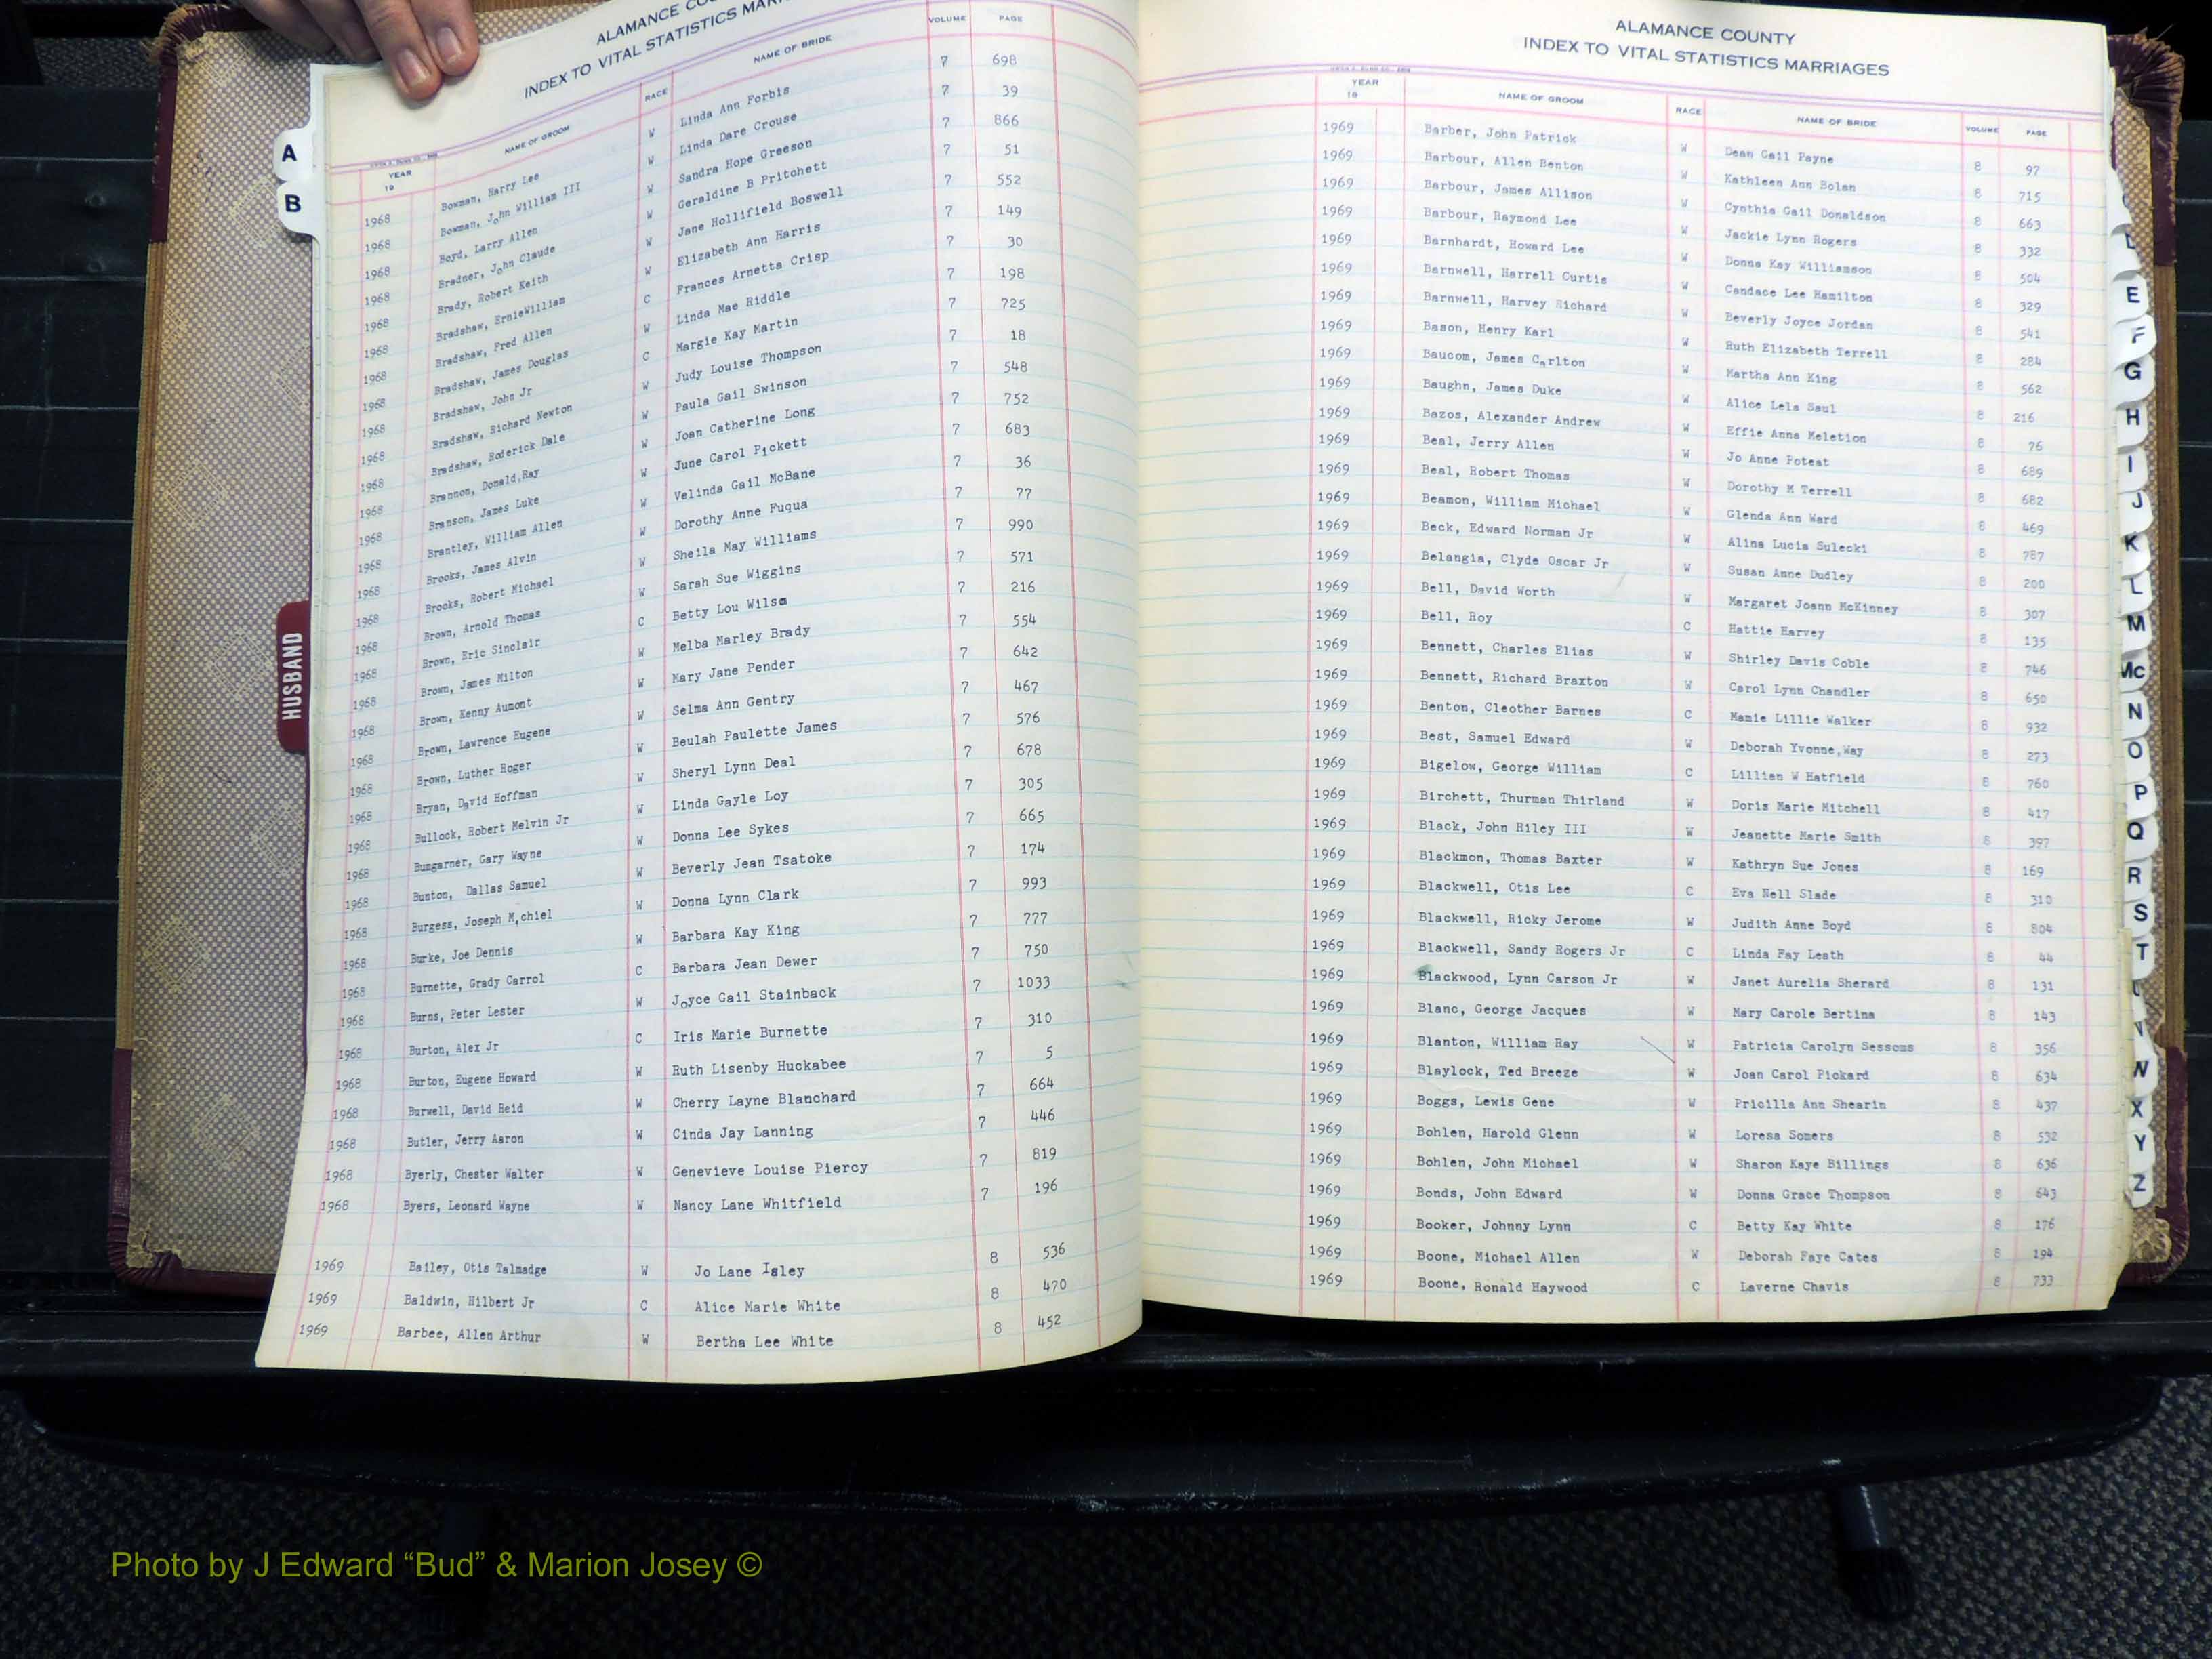 ALAMANCE COU
INDEX TO VITAL STATISTICS MARR
YEAR 19 NAME OF GROOM RACE NAME OF BRIDE VOLUME PAGE
1968 Bowman, Harry Lee W Linda Ann Forbis 7 698
1968 Bowman, John William III W Linda Dare Crouse 7 39
1968 Boyd, Larry Allen W Sandra Hope Greeson 7 866
1968 Bradner, John Claude W Geraldine B Pritchett 7 51
1968 Brady, Robert Keith W Jane Hollifield Boswell 7 552
1968 Bradshaw, ErnieWilliam W Elizabeth Ann Harris 7 149
1968 Bradshaw, Fred Allen C Frances Arnetta Crisp 7 30
1968 Bradshaw, James Douglas W Linda Mae Riddle 7 198
1968 Bradshaw, John Jr C Margie Kay Martin 7 725
1968 Bradshaw, Richard Newton W Judy Louise Thompson 7 18
1968 Bradshaw, Roderick Dale W Paula Gail Swinson 7 548
1968 Brannon, Donald,Ray W Joan Catherine Long 7 752
1968 Branson, James Luke W June Carol Pickett 7 683
1968 Brantley, William Allen W Velinda Gail McBane 7 36
1968 Brooks, James Alvin W Dorothy Anne Fuqua 7 77
1968 Brooks, Robert Michael W Sheila May Williams 7 990
1968 Brown, Arnold Thomas W Sarah Sue Wiggins 7 571
1968 Brown, Eric Sinclair C Betty Lou Wilso 7 216
1968 Brown, James Milton W Melba Marley Brady 7 554
1968 Brown, Kenny Aumont W Mary Jane Pender 7 642
1968 Brown, Lawrence Eugene W Selma Ann Gentry 7 467
1968 Brown, Luther Roger W Beulah Paulette James 7 576
1968 Bryan, David Hoffman W Sheryl Lynn Deal 7 678
1968 Bullock, Robert Melvin Jr W Linda Gayle Loy 7 305
1968 Bumgarner, Gary Wayne W Donna Lee Sykes 7 665
1968 Bunton, Dallas Samuel W Beverly Jean Tsatoke 7 174
1968 Burgess, Joseph Michiel W Donna Lynn Clark 7 993
1968 Burke, Joe Dennis W Barbara Kay King 7 777
1968 Burnette, Grady Carrol C Barbara Jean Dewer 7 750
1968 Burns, Peter Lester W Joyce Gail Stainback 7 1033
1968 Burton, Alex Jr C Iris Marie Burnette 7 310
1968 Burton, Eugene Howard W Ruth Lisenby Huckabee 7 5
1968 Burwell, David Reid W Cherry Layne Blanchard 7 664
1968 Butler, Jerry Aaron W Cinda Jay Lanning 7 446
1968 Byerly, Chester Walter W Genevieve Louise Piercy 7 819
1968 Byers, Leonard Wayne W Nancy Lane Whitfield 7 196
1969 Bailey, Otis Talmadge W Jo Lane Isley 8 536
1969 Baldwin, Hilbert Jr C Alice Marie White 8 470
1969 Barbee, Allen Arthur W Bertha Lee White 8 452
A
B
HUSBAND
ALAMANCE COUNTY
INDEX TO VITAL STATISTICS MARRIAGES
YEAR 19 NAME OF GROOM RACE NAME OF BRIDE VOLUME PAGE
1969 Barber, John Patrick W Dean Gail Payne 8 97
1969 Barbour, Allen Benton W Kathleen Ann Bolan 8 715
1969 Barbour, James Allison W Cynthia Gail Donaldson 8 663
1969 Barbour, Raymond Lee W Jackie Lynn Rogers 8 332
1969 Barnhardt, Howard Lee W Donna Kay Williamson 8 504
1969 Barnwell, Harrell Curtis W Candace Lee Hamilton 8 329
1969 Barnwell, Harvey Richard W Beverly Joyce Jordan 8 541
1969 Bason, Henry Karl W Ruth Elizabeth Terrell 8 284
1969 Baucom, James Carlton W Martha Ann King 8 562
1969 Baughn, James Duke W Alice Lela Saul 8 216
1969 Bazos, Alexander Andrew W Effie Anna Meletion 8 76
1969 Beal, Jerry Allen W Jo Anne Poteat 8 689
1969 Beal, Robert Thomas W Dorothy M Terrell 8 682
1969 Beamon, William Michael W Glenda Ann Ward 8 469
1969 Beck, Edward Norman Jr W Alina Lucia Sulecki 8 787
1969 Belangia, Clyde Oscar Jr W Susan Anne Dudley 8 200
1969 Bell, David Worth W Margaret Joann McKinney 8 307
1969 Bell, Roy C Hattie Harvey 8 135
1969 Bennett, Charles Elias W Shirley Davis Coble 8 746
1969 Bennett, Richard Braxton W Carol Lynn Chandler 8 650
1969 Benton, Cleother Barnes C Mamie Lillie Walker 8 932
1969 Best, Samuel Edward W Deborah Yvonne,Way 8 273
1969 Bigelow, George William C Lillian W Hatfield 8 760
1969 Birchett, Thurman Thirland W Doris Marie Mitchell 8 417
1969 Black, John Riley III W Jeanette Marie Smith 8 397
1969 Blackmon, Thomas Baxter W Kathryn Sue Jones 8 169
1969 Blackwell, Otis Lee C Eva Nell Slade 8 310
1969 Blackwell, Ricky Jerome W Judith Anne Boyd 8 804
1969 Blackwell, Sandy Rogers Jr C Linda Fay Leath 8 44
1969 Blackwood, Lynn Carson Jr W Janet Aurelia Sherard 8 131
1969 Blanc, George Jacques W Mary Carole Bertina 8 143
1969 Blanton, William Ray W Patricia Carolyn Sessoms 8 356
1969 Blaylock, Ted Breeze W Joan Carol Pickard 8 634
1969 Boggs, Lewis Gene W Pricilla Ann Shearin 8 437
1969 Bohlen, Harold Glenn W Loresa Somers 8 532
1969 Bohlen, John Michael W Sharon Kaye Billings 8 636
1969 Bonds, John Edward W Donna Grace Thompson 8 643
1969 Booker, Johnny Lynn C Betty Kay White 8 176
1969 Boone, Michael Allen W Deborah Faye Cates 8 194
1969 Boone, Ronald Haywood C Laverne Chavis 8 733
E
F
G
H
I
J
K
L
M
Mc
N
O
P
Q
R
S
T
W
X
Y
Z
Photo by J Edward “Bud” & Marion Josey ©